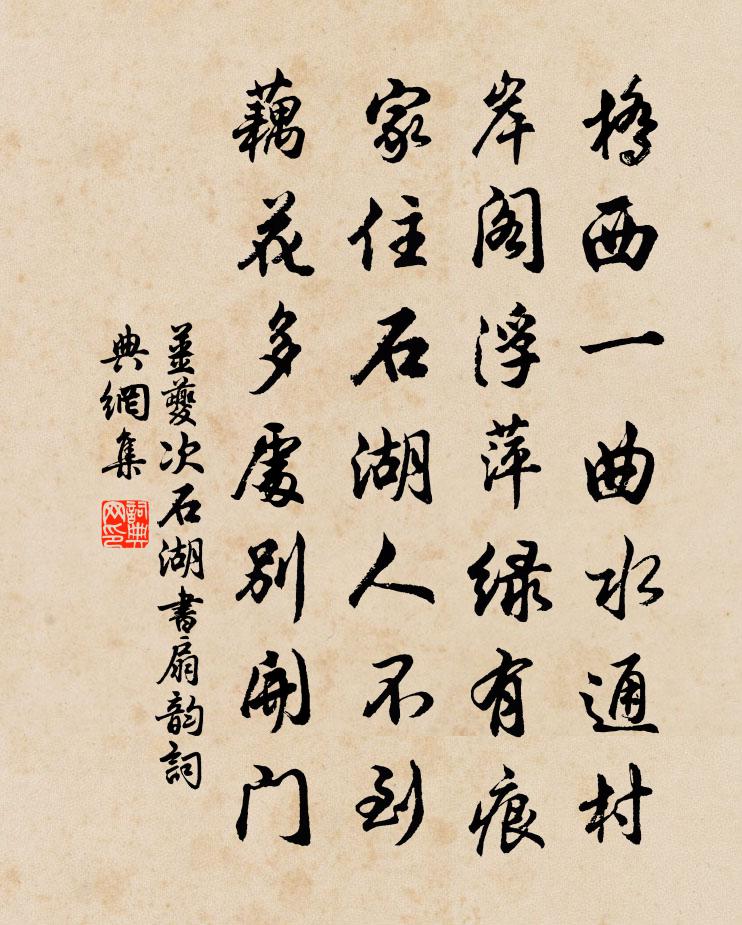 橋西一曲水通村
岸閣浮萍綠有痕
家住石湖人不到
藕花多處別開門
姜夔次石湖書扇韵詞
典網集
詞典
网印